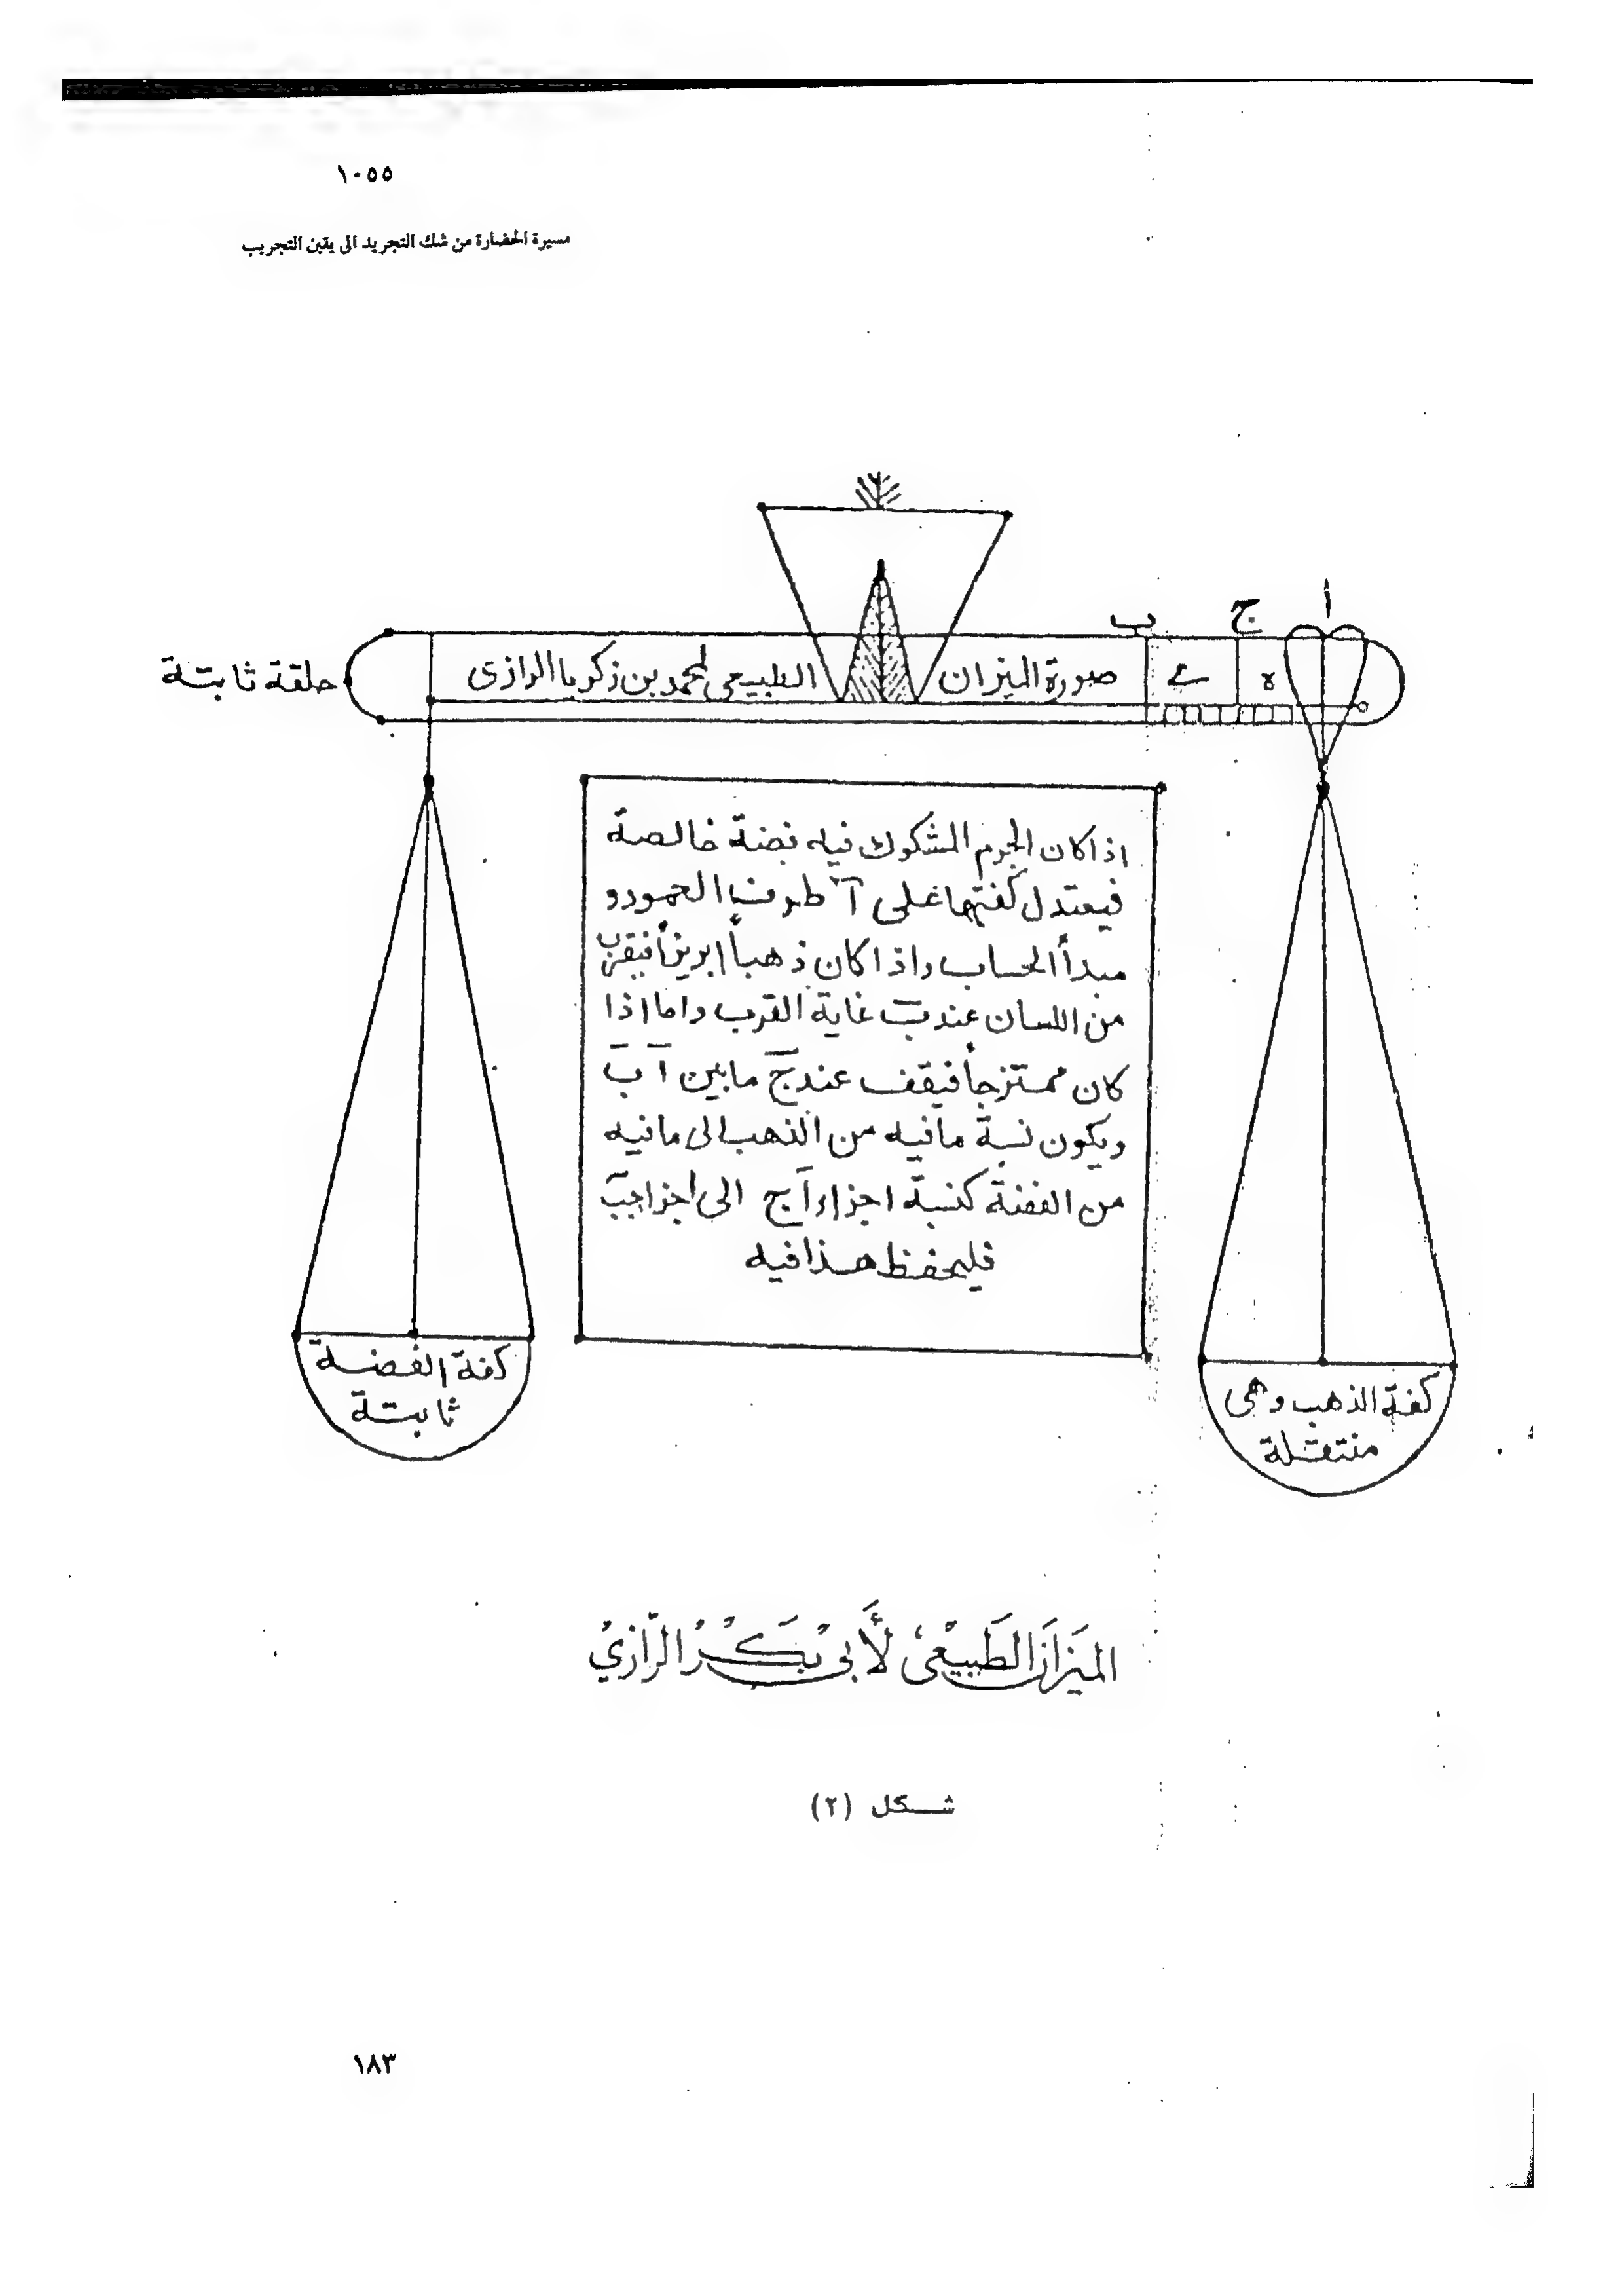 ١٠٥٥
مسيرة الحضارة من شك التجريد الى يقين التجريب
أ
ج
ب
ه
صورة الميزان الطبيعي لمحمد بن زكريا الرازى
حلقة ثابتة
اذا كان الجرم المشكوك فيه فضة خالصة
فيعتدل كفتها على آ طرف العمود و
مبدأ الحساب واذا كان ذهباً ابريزاً فيقرب
من اللسان عند ب غاية القرب واما اذا
كان ممتزجاً فيقف عند ج ما بين آ ب
ويكون نسبة مافيه من الذهب الى مافيه
من الفضة كنسبة اجزاء آج الى اجزا جب
فليحفظ هذا فيه
كفة الفضة
ثابتة
كفة الذهب وهى
منتقلة
الميزان الطبيعي لأبي بكر الرازي
شكل (٢)
١٨٣